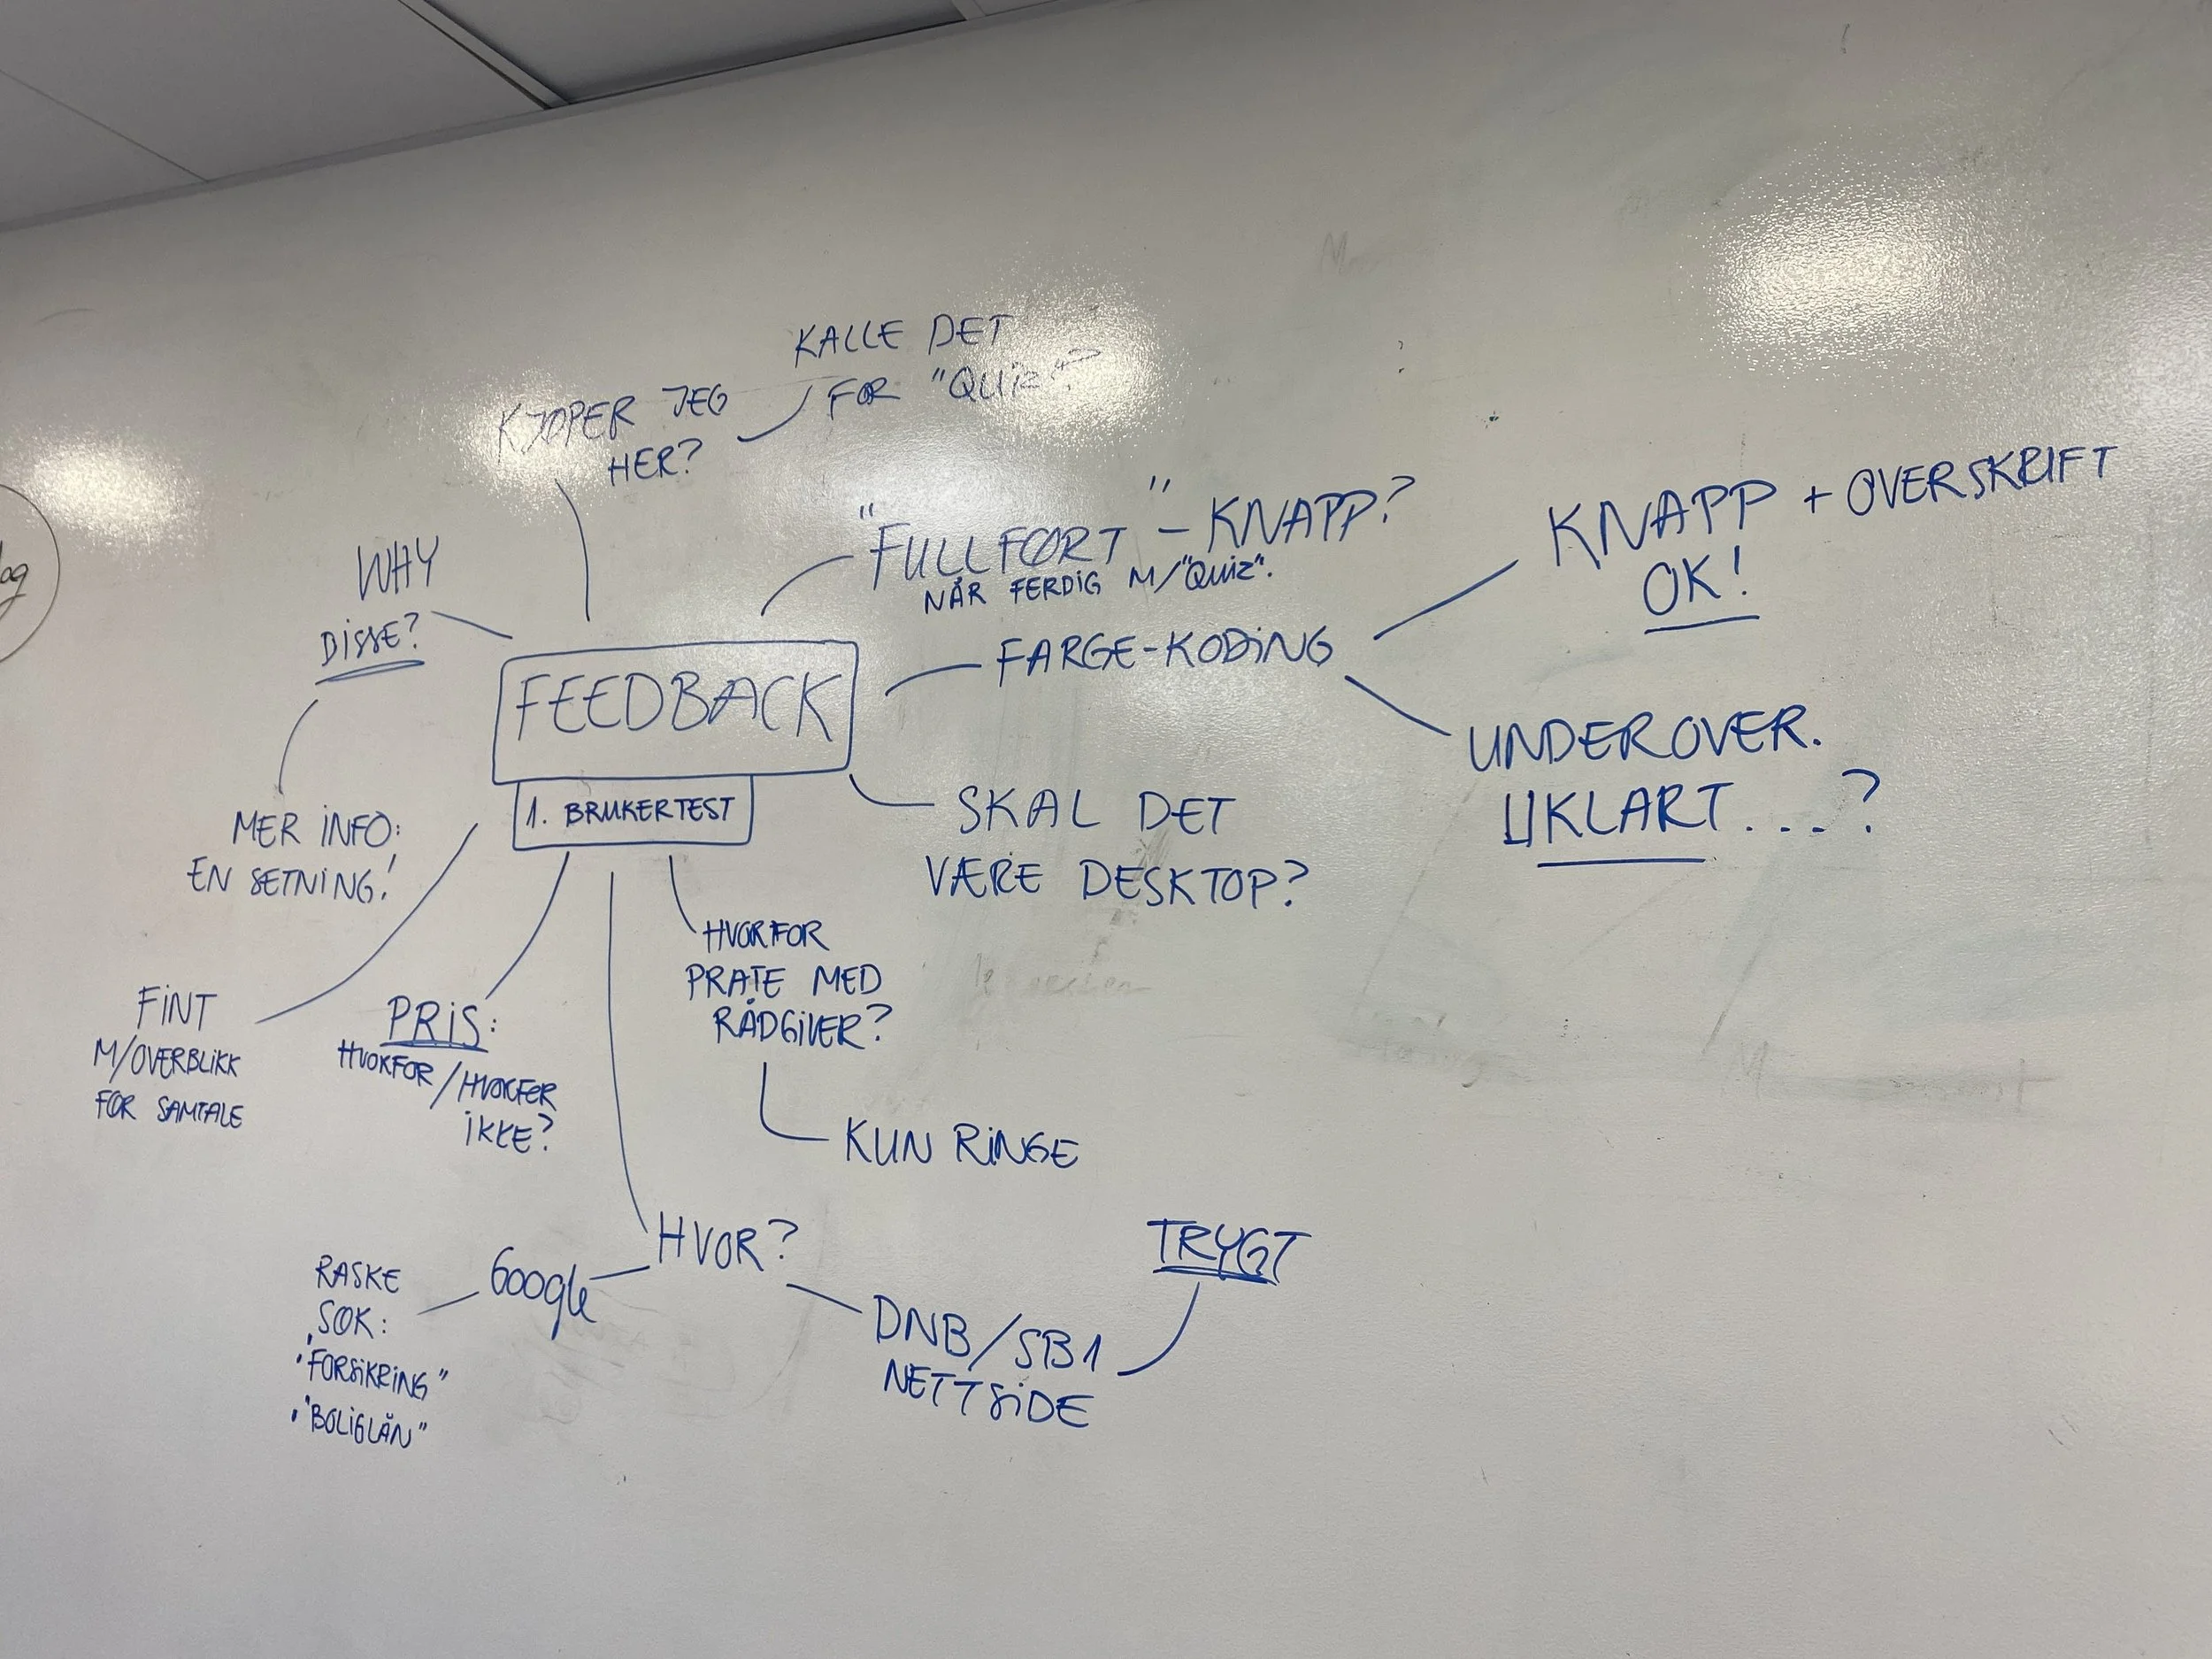 KALLE DET
FOR "QUIZ"?
KJØPER JEG
HER?
"FULLFØRT" - KNAPP?
NÅR FERDIG M/"QUIZ".
KNAPP + OVERSKRIFT
OK!
WHY
DISSE?
FARGE-KODING
FEEDBACK
1. BRUKERTEST
UNDEROVER.
UKLART....?
SKAL DET
VÆRE DESKTOP?
MER INFO:
EN SETNING!
HVORFOR
PRATE MED
RÅDGIVER?
KUN RINGE
FINT
M/OVERBLIKK
FØR SAMTALE
PRIS:
HVORFOR/HVORFOR
IKKE?
HVOR?
Google
RASKE
SØK:
• "FORSIKRING"
• "BOLIGLÅN"
DNB/SB1
NETTSIDE
TRYGT